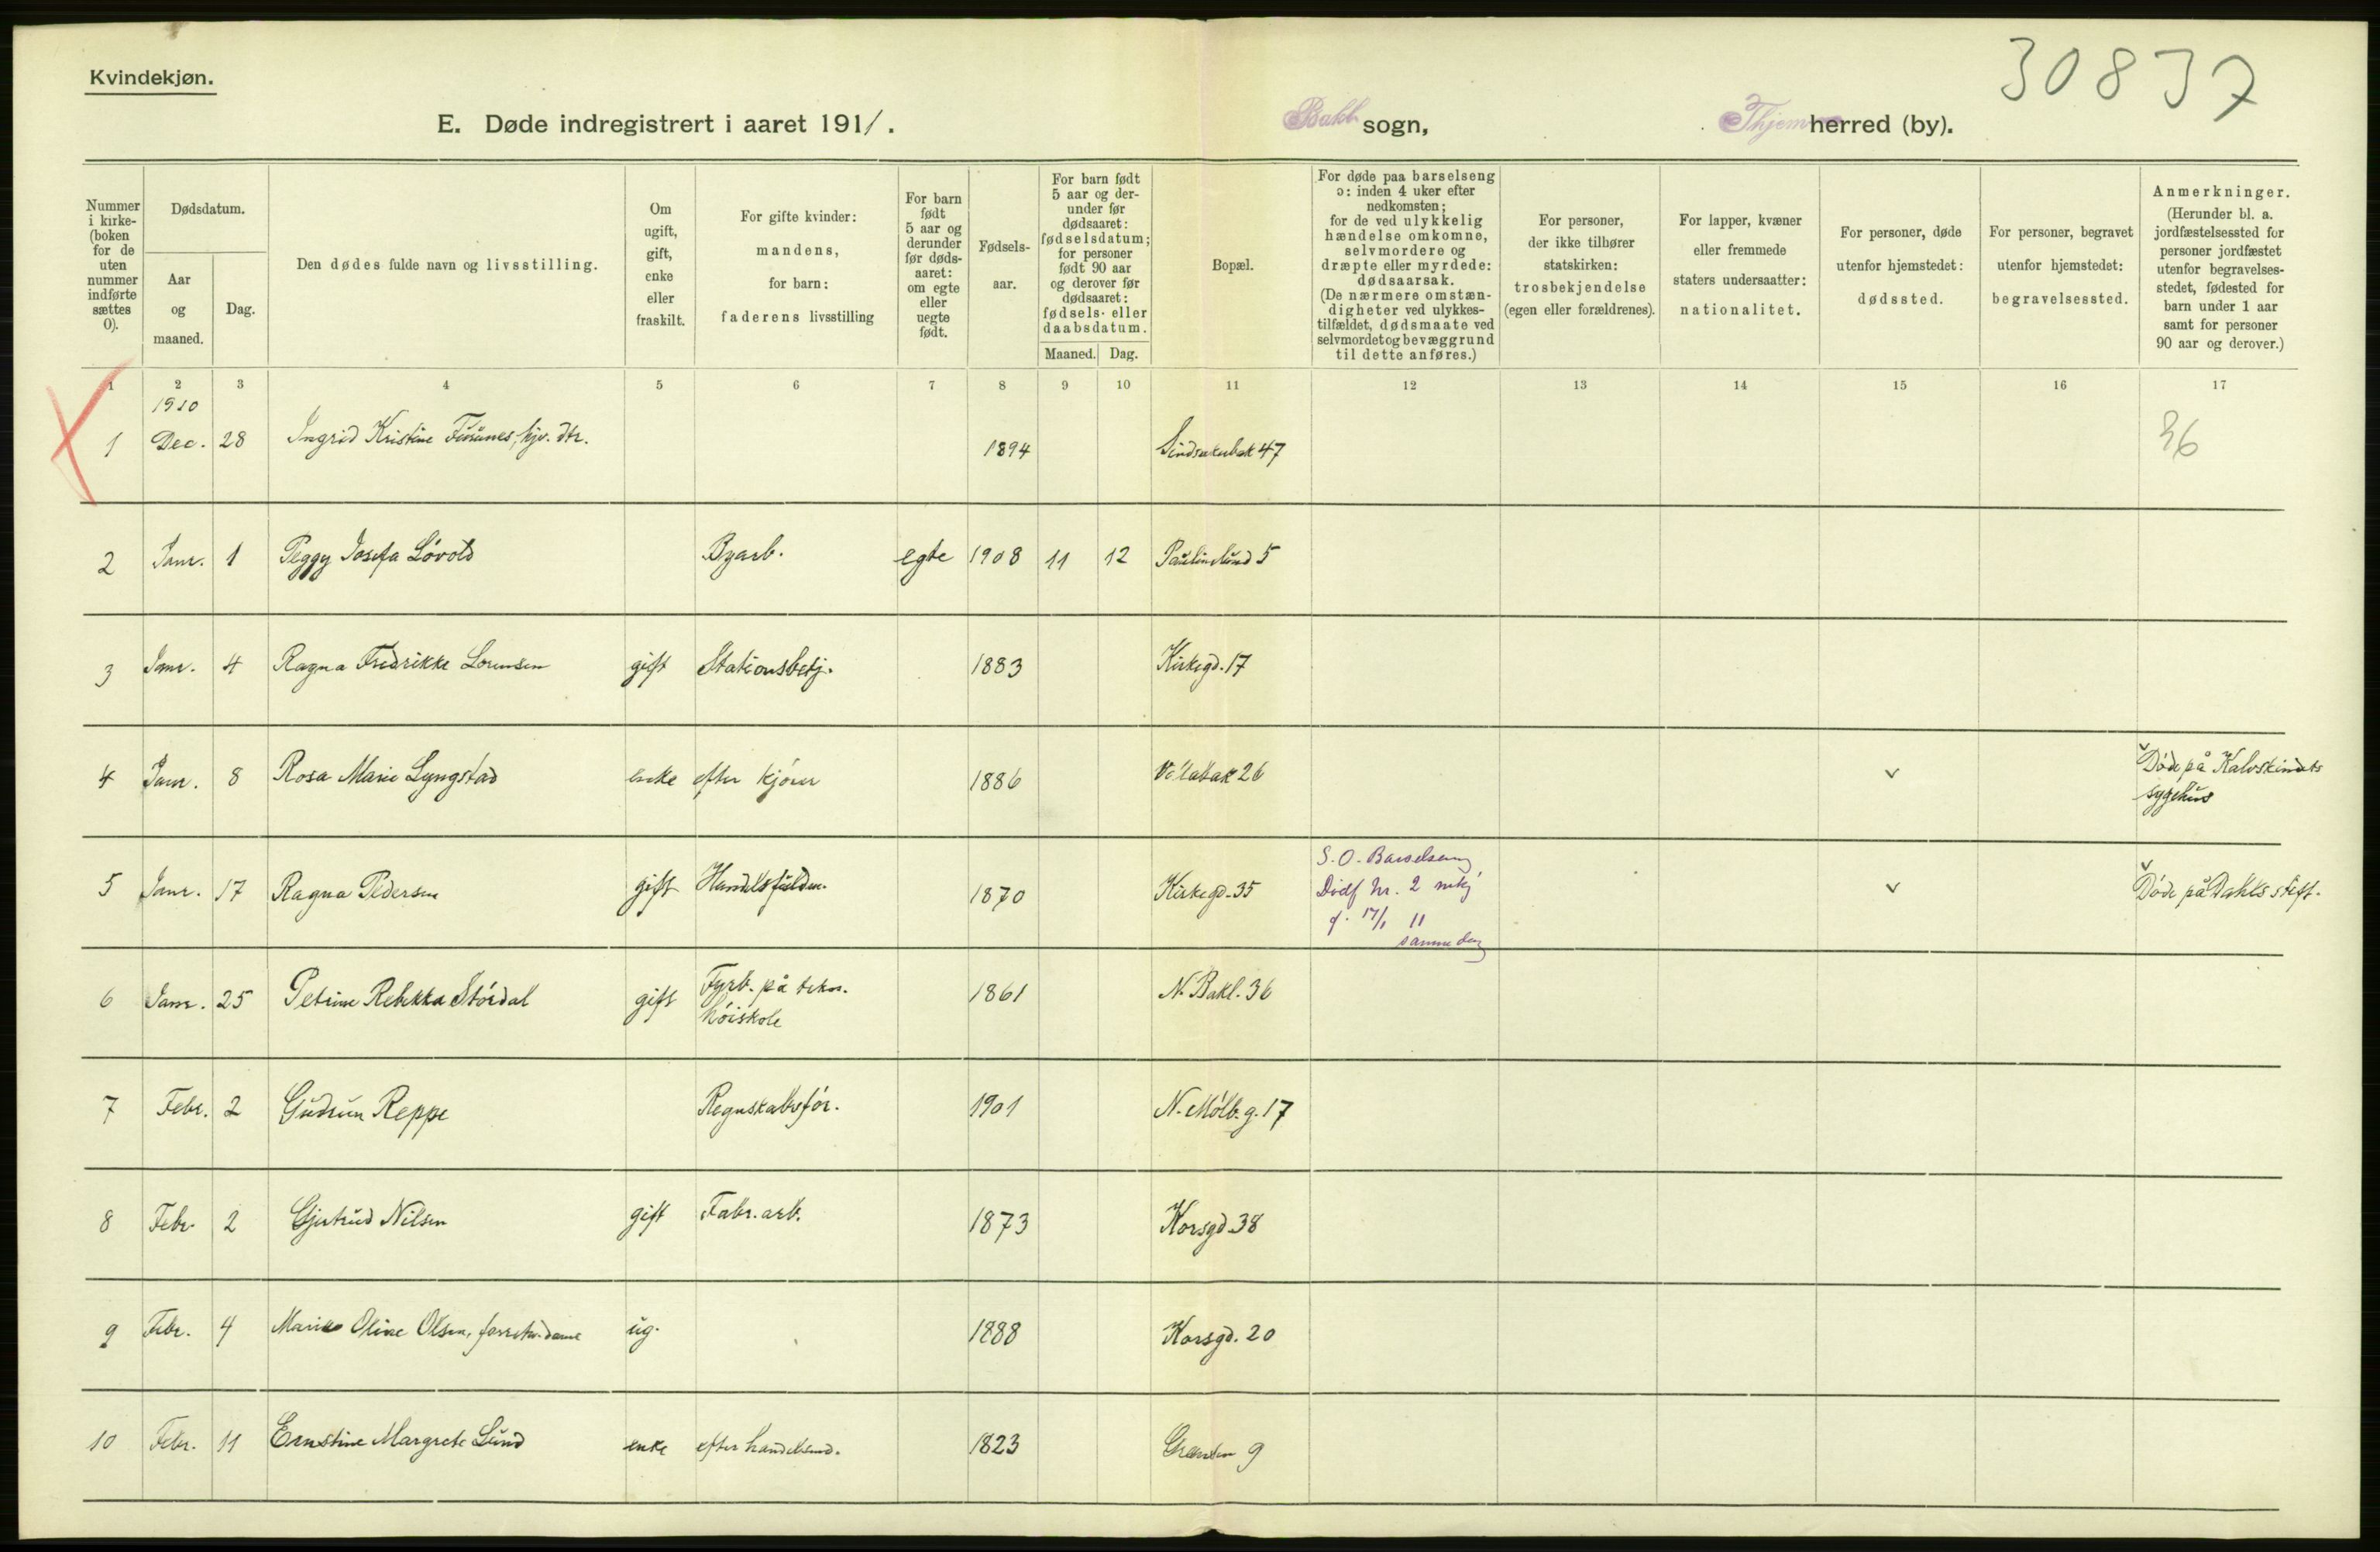 Kvindekjøn.
30837
E. Døde indregistrert i aaret 1911.
Bakl sogn,
Thjem herred (by).
Nummer i kirke-(boken for de uten nummer indførte sættes 0).
Dødsdatum.
Aar og maaned.
Dag.
Den dødes fulde navn og livsstilling.
Om ugift, gift, enke eller fraskilt.
For gifte kvinder: mandens, for barn: faderens livsstilling
For barn født 5 aar og derunder før døds-aaret: om egte eller uegte født.
Fødsels-aar.
For barn født 5 aar og der-under før dødsaaret: fødselsdatum; for personer født 90 aar og derover før dødsaaret: fødsels- eller daabsdatum.
Maaned. Dag.
Bopæl.
For døde paa barselseng ɔ: inden 4 uker efter nedkomsten; for de ved ulykkelig hændelse omkomne, selvmordere og dræpte eller myrdede: dødsaarsak. (De nærmere omstæn-digheter ved ulykkes-tilfældet, dødsmaate ved selvmordet og bevæggrund til dette anføres.)
For personer, der ikke tilhører statskirken: trosbekjendelse (egen eller forældrenes).
For lapper, kvæner eller fremmede staters undersaatter: nationalitet.
For personer, døde utenfor hjemstedet: dødssted.
For personer, begravet utenfor hjemstedet: begravelsessted.
Anmerkninger. (Herunder bl. a. jordfæstelsessted for personer jordfæstet utenfor begravelses-stedet, fødested for barn under 1 aar samt for personer 90 aar og derover.)
1 2 3 4 5 6 7 8 9 10 11 12 13 14 15 16 17
1910
1 Dec. 28 Ingrid Kristine hjv. dtr. 1894 47 36
2 Janr. 1 Peggy Josefa Løvold Byarb. egte 1908 11 12 Paulinelund 5
3 Janr. 4 Ragna Fredrikke Lorensen gift Stationsbetj. 1883 Kirkegd. 17
4 Janr. 8 Rosa Marie Lyngstad enke efter kjører 1886 Vollabak 26 v Døde på Kalvskindets
sygehus
5 Janr. 17 Ragna Pedersen gift Handelsfuldm. 1870 Kirkegd. 35 S. O. Barselseng v Døde på Dahls stift.
Dødf nr. 2 mkj
f. 17/1 11
samme dag
6 Janr. 25 Petrine Rebekka Stördal gift Fyrb. på tekn. 1861 N. Bakl. 36
höiskole
7 Febr. 2 Gudrun Reppe Regnskabsfør. 1901 N. Møllb. g. 17
8 Febr. 2 Gjertrud Nilsen gift Fabr. arb. 1873 Korsgd. 38
9 Febr. 4 Marie Oline Olsen, forretn.dame ug. 1888 Korsgd. 20
10 Febr. 11 Ernstine Margrete Lund enke efter handelsmd. 1823 9